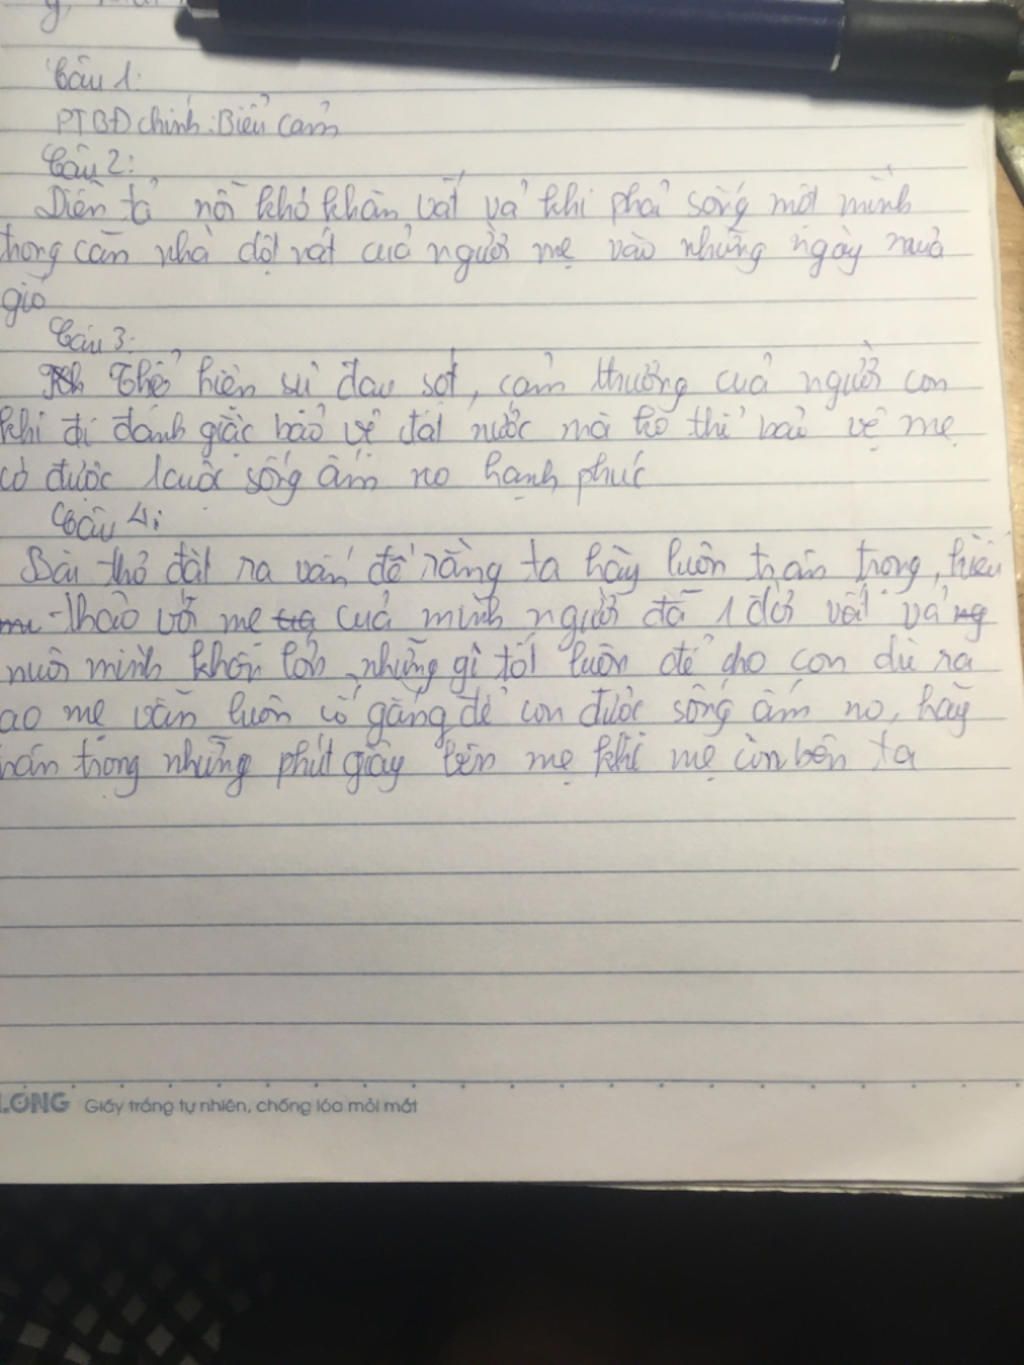 Câu 1:
PTBĐ chính: Biểu cảm
Câu 2:
Diễn tả nỗi khó khăn vất vả khi phải sống một mình
trong căn nhà dột nát của người mẹ vào những ngày mưa
gió
Câu 3:
Thể hiện sự đau sót, cảm thương của người con
khi đi đánh giặc bảo vệ đất nước mà ko thể bảo vệ mẹ
có được 1 cuộc sống ấm no hạnh phúc
Câu 4:
Bài thơ đặt ra vấn đề rằng ta hãy luôn trân trọng, hiếu
thảo với mẹ của mình người đã 1 đời vất vả
nuôi mình khôn lớn, những gì tốt luôn để cho con dù ra
sao mẹ vẫn luôn cố gắng để con được sống ấm no, hãy
trân trọng những phút giây bên mẹ khi mẹ còn bên ta
LONG Giấy trắng tự nhiên, chống lóa mỏi mắt